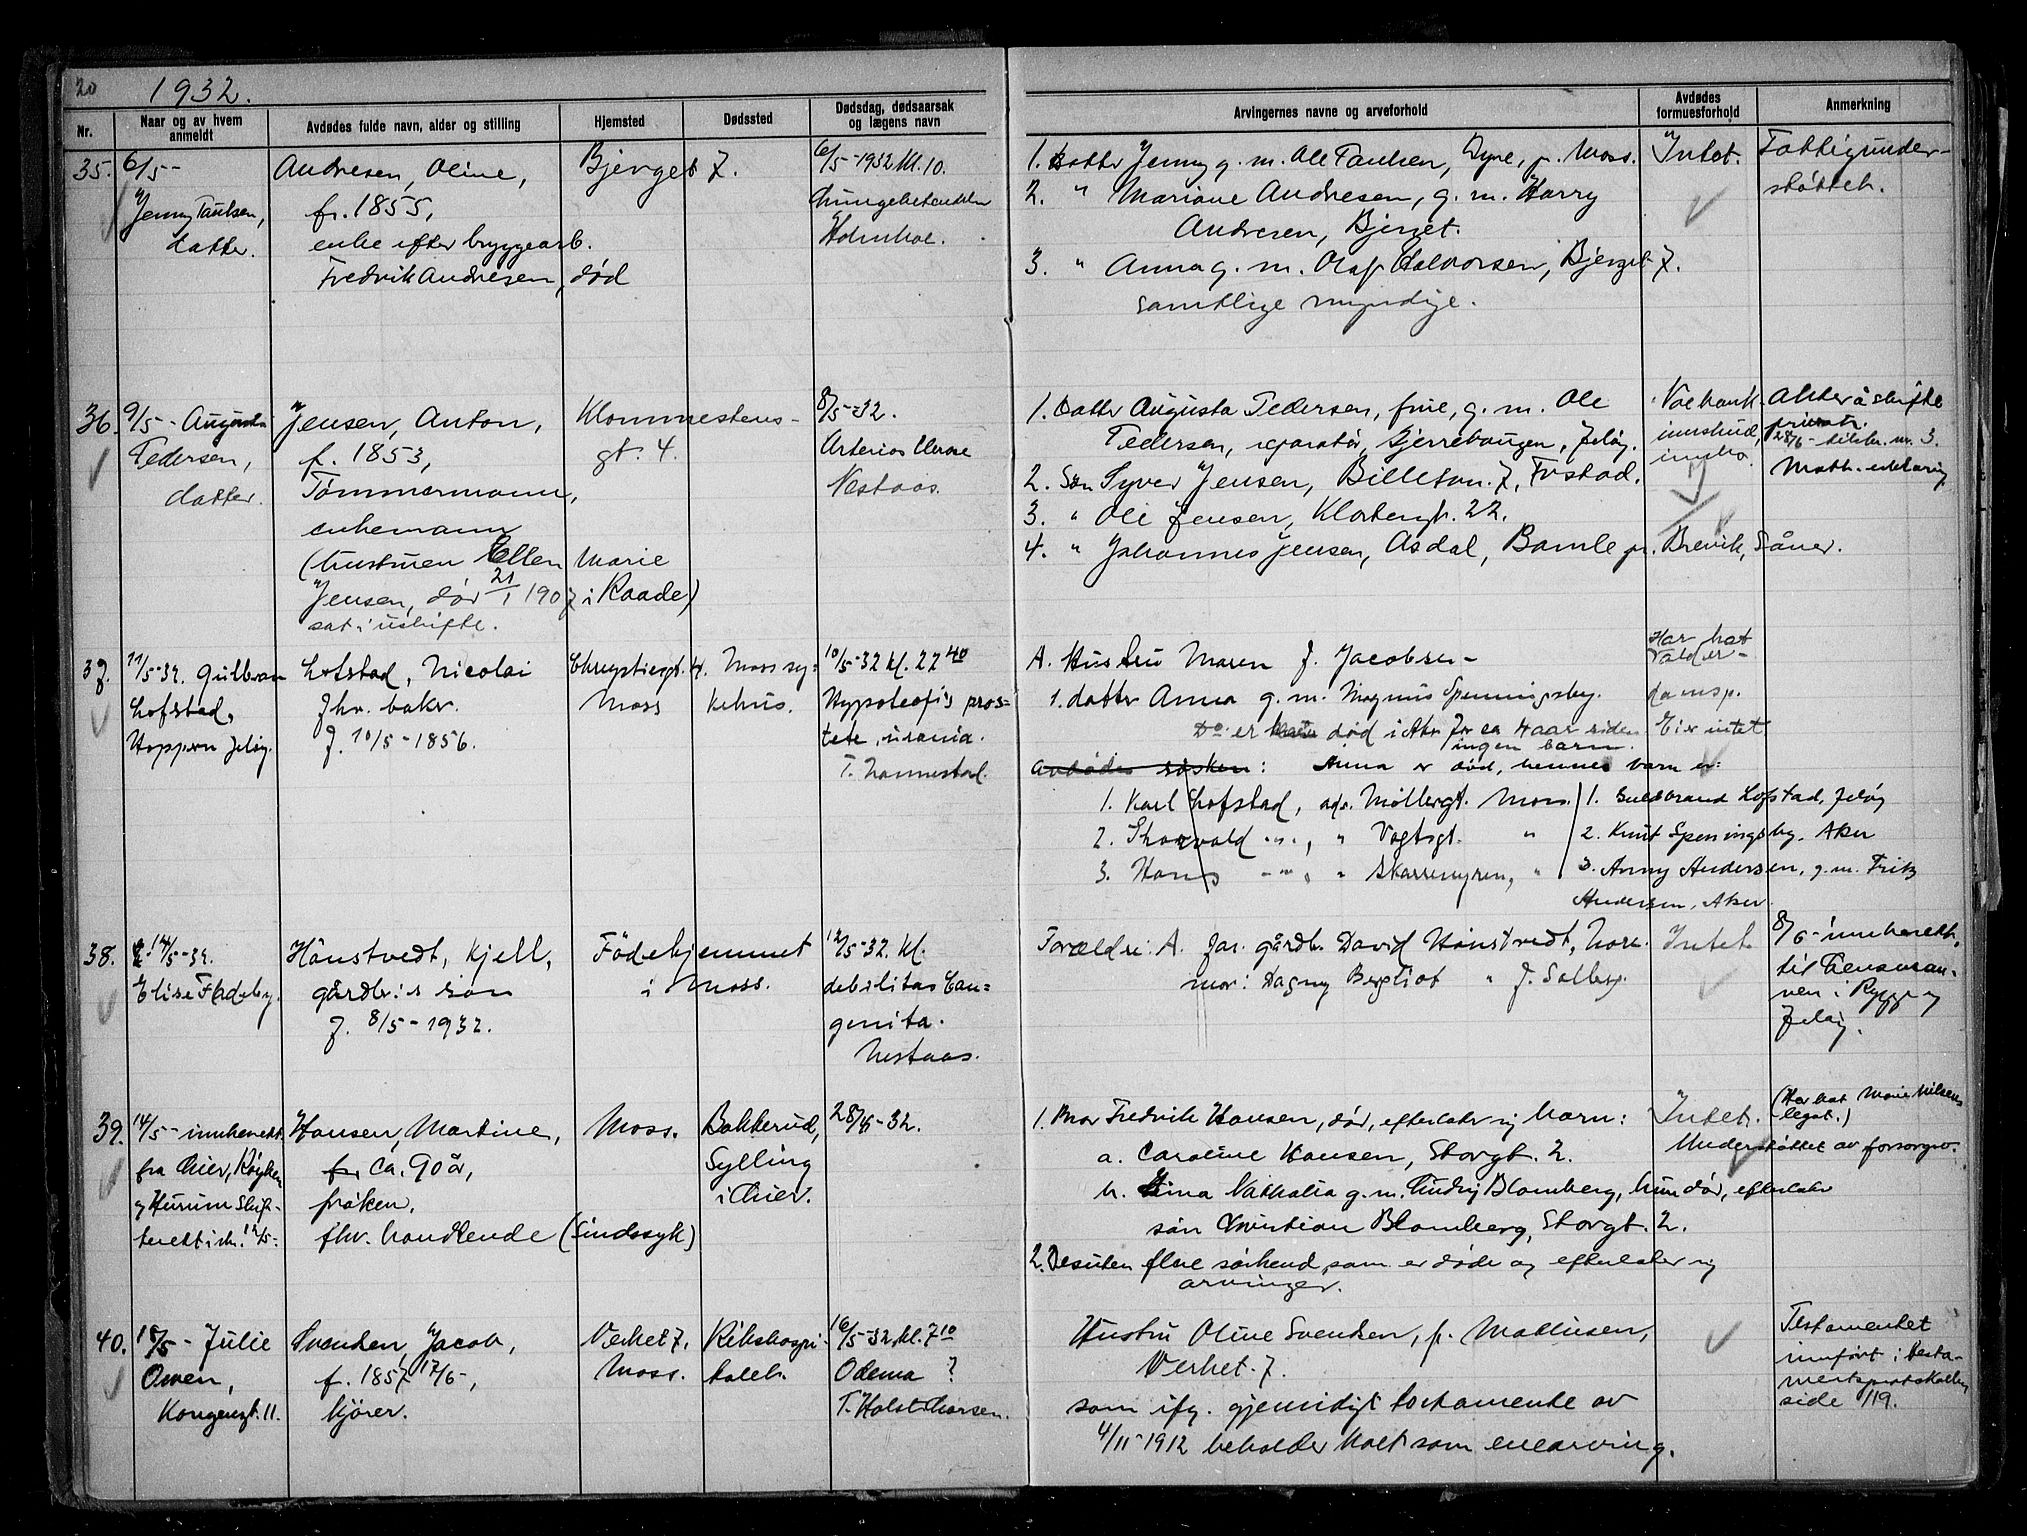 20
1932.
Nr.
Naar og av hvem anmeldt
Avdødes fulde navn, alder og stilling
Hjemsted
Dødssted
Dødsdag, dødsaarsak og lægens navn
Arvingernes navne og arveforhold
Avdødes formuesforhold
Anmerkning
35.
6/5-
Jenny Paulsen,
datter.
Andresen, Oline,
f. 1855,
enke efter bryggearb.
Fredrik Andresen, død
Bjerget 7.
6/5-1932 kl. 10.
Lungebetendelse
Holmboe.
1. Datter Jenny g. m. Ole Paulsen, Dyre, p. Moss.
2. " Mariane Andresen, g. m. Harry
Andresen, Bjerget.
3. " Anna g. m. Olaf Halvorsen, Bjerget 7.
samtlige myndige.
Intet.
Fattigunder-
støttet.
36.
9/5 - Augusta
Pedersen,
datter.
Jensen, Anton,
f. 1853,
Tømmermann,
enkemann
(hustruen Ellen Marie
Jensen, død 21/1 1907 i Raade)
sat i uskifte.
Klommestens-
gt. 4.
8/5-32.
Arterios clerose
Nestaas.
1. Datter Augusta Pedersen, frue, g. m. Ole
Pedersen, reparatør, Bjerrehaugen, Jeløy.
2. Søn Syver Jensen, Billeton. 7, Fostad.
3. " Ole Jensen, Klostergt. 22.
4. " Johannes Jensen, Asdal, Bamle pr. Brevik, Såner.
Noe bank-
innskud,
innbo.
Akter å skifte
privat.
28/6 - tilst. nr. 3.
Mott. erklæring
37.
11/5-32. Gulbran
Lofstad,
Hoppern Jeløy.
Lofstad, Nicolai
fhv. baker.
f. 10/5-1856.
Chrystiesgt. 4.
Moss
Moss sy-
kehus.
10/5-32 kl. 22 40
Hypoteofis pros-
tate, uremia.
T. Hannestad.
A. Hustru Maren f. Jacobsen-
1. datter Anna g. m. Magnus Spenningsby.
Do er død i Aker for ca 4 aar siden
ingen barn.
Avdødes søsken: Anna er død, hennes barn er:
1. Karl Lofstad, adr. Møllergt. Moss.
2. Thorvald -"-, " Vogtsgt. "
3. Hans -"-, " Skarremyren, "
1. Guldbrand Lofstad, Jeløy
2. Knut Spenningsby, Aker
3. Anny Andersen, g. m. Fritz
Andersen, Aker.
Har hat
alder-
domsp.
Eier intet
38.
14/5-32.
Elise Fladeby.
Hönstvedt, Kjell,
gårdbr:s søn
f. 8/5-1932.
Födehjemmet
i Moss.
12/5-32. kl.
debilitas Con-
genita.
Nestaas.
Forældre: A. far. gårdbr. David Hönstvedt, Nore.
mor: Dagny Bergliot " f. Solberg.
Intet
8/6 - innberett.
til lensman-
nen i Rygge og
Jeløy.
39.
14/5 - innberett.
fra Lier, Røyken
og Hurum Skif-
terett 12/5-
Hansen, Martine,
ca. 90 år,
frøken,
fhv. handlende (Sindssyk)
Moss.
Bakkerud,
Sylling
i Lier.
28/4-32.
1. Bror Fredrik Hansen, død, efterlatr sig barn:
a. Caroline Hansen, Storgt. 2.
b. Nathalia g. m. Ludvig Blomberg, hun død, efterlatr
søn Christian Blomberg, Storgt. 2.
2. Desuten flere søskend, som er døde og efterlater sig
arvinger.
Intet.
(Har hat Marie Nilsens
legat.)
Understøttet av forsorgsv.
40.
18/5 - Julie
Owen,
Kongensgt. 11.
Svendsen, Jacob,
f. 1857 17/6-,
kjører.
Verket 7,
Moss.
Rikshospi-
talet.
16/5-32. kl. 7 10
Odema ?
T. Holst Larsen.
Hustru Oline Svendsen, f. Mathisen,
Verket. 7.
som iflg. gjensidigt testamente av
4/11-1912 beholder alt som enearving.
Testamentet
innført i testa-
mentsprotokollen
side 119.